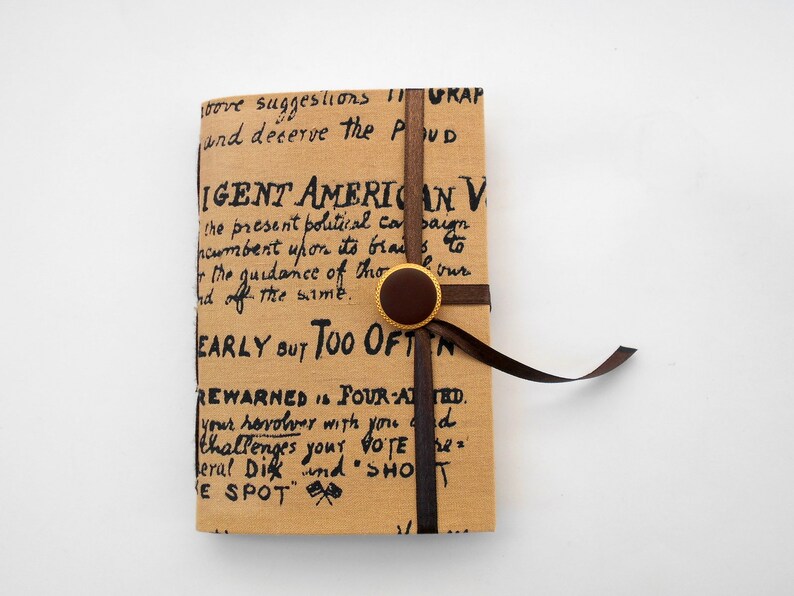 above suggestions GRAP
and deserve the PROUD
IGENT AMERICAN V
the present political campaign
ncumbent upon its brains to
r the guidance of those our
nd off the same.
EARLY BUT TOO OFTEN
REWARNED is FOUR-ARMED.
your revolver with you and
challenges your VOTE re=
eral Dix and "SHOOT
E SPOT"